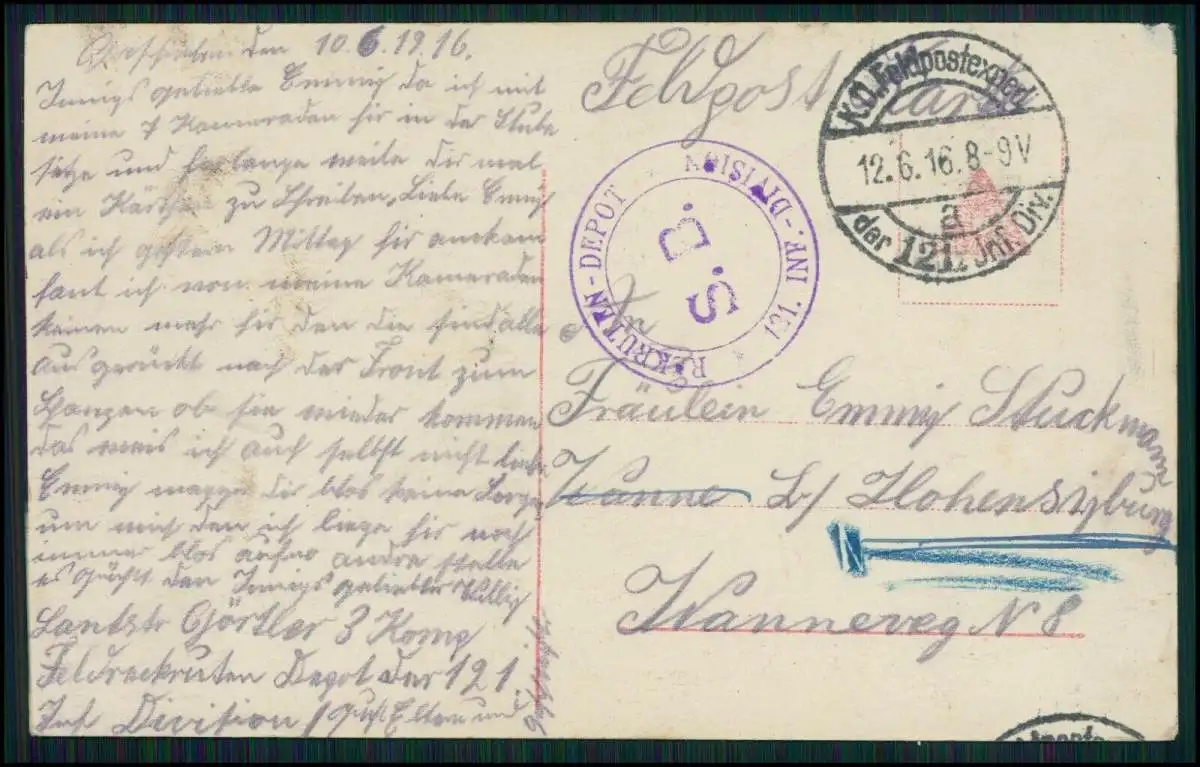 den 10.6.1916.
Innigs geliebte Emmy da ich mit
meine 7 Kameraden hir in der Stube
sitze und for lange weile dir mal
ein Kärtchen zu schreiben, Liebe Emmy
als ich gestern Mittag hir ankam
fant ich von meine Kameraden
keinen mehr hir den die sind alle
ausgerückt nach der Front zum
ob sie wieder kommen
das weis ich auch selbst nicht liebe
Emmy magge dir blos keine Sorge
um mich den ich liege hir noch
immer blos andre stelle
es den Innigs geliebter Willy
Landstr Görtler 3 Komp
Feldreckruten Depot der 121
Inf Division / Gruß Eltern und
Feldpost Karte
K.D. Feldpostexped.
12.6.16. 8-9V
a
der 121. Inf. Div.
REKRUTEN-DEPOT 121. INF.-DIVISION
S. B.
An
Fräulein Emmy Stuckmann
Wanne b/ Hohensyburg
Wanneveg N 8